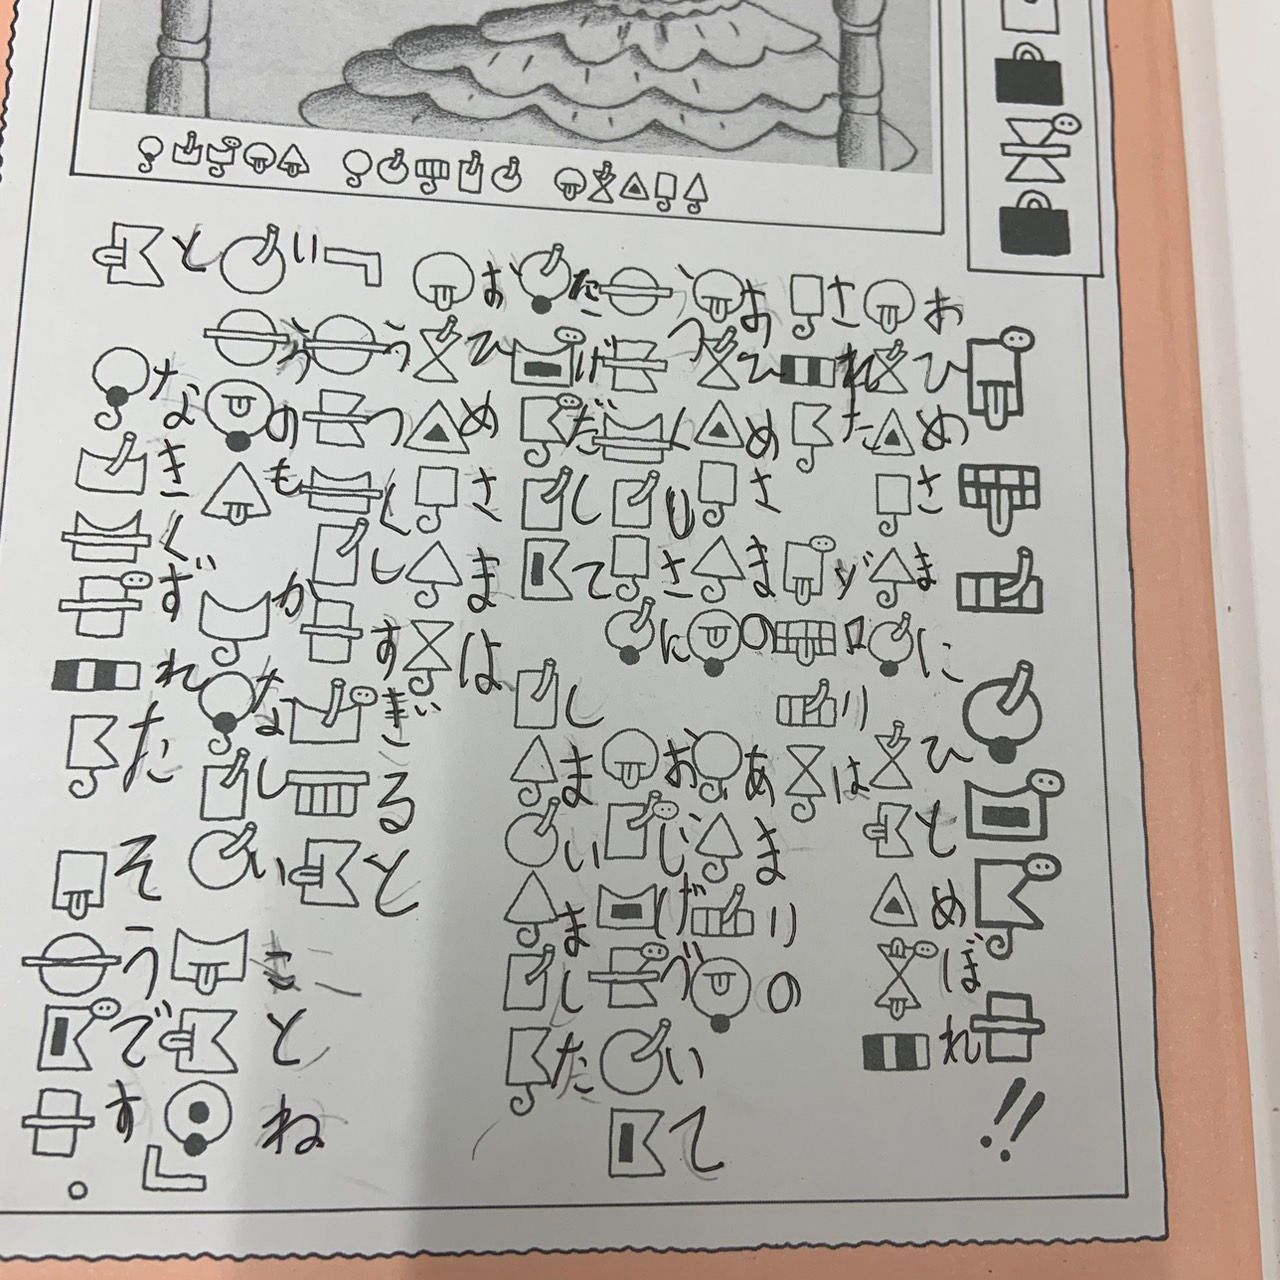 !!
おひめさまに ひとめぼれ
されたゾロリは
おひめさまの あまりの
うつくしさに おじげづいて
にげだして しまいました
おひめさまは
「うつくしすぎると
いうのも かなしい ことね」
と なきくずれた そうです。